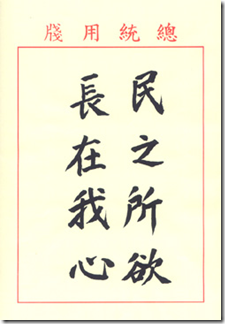 總統用牋
民之所欲
長在我心